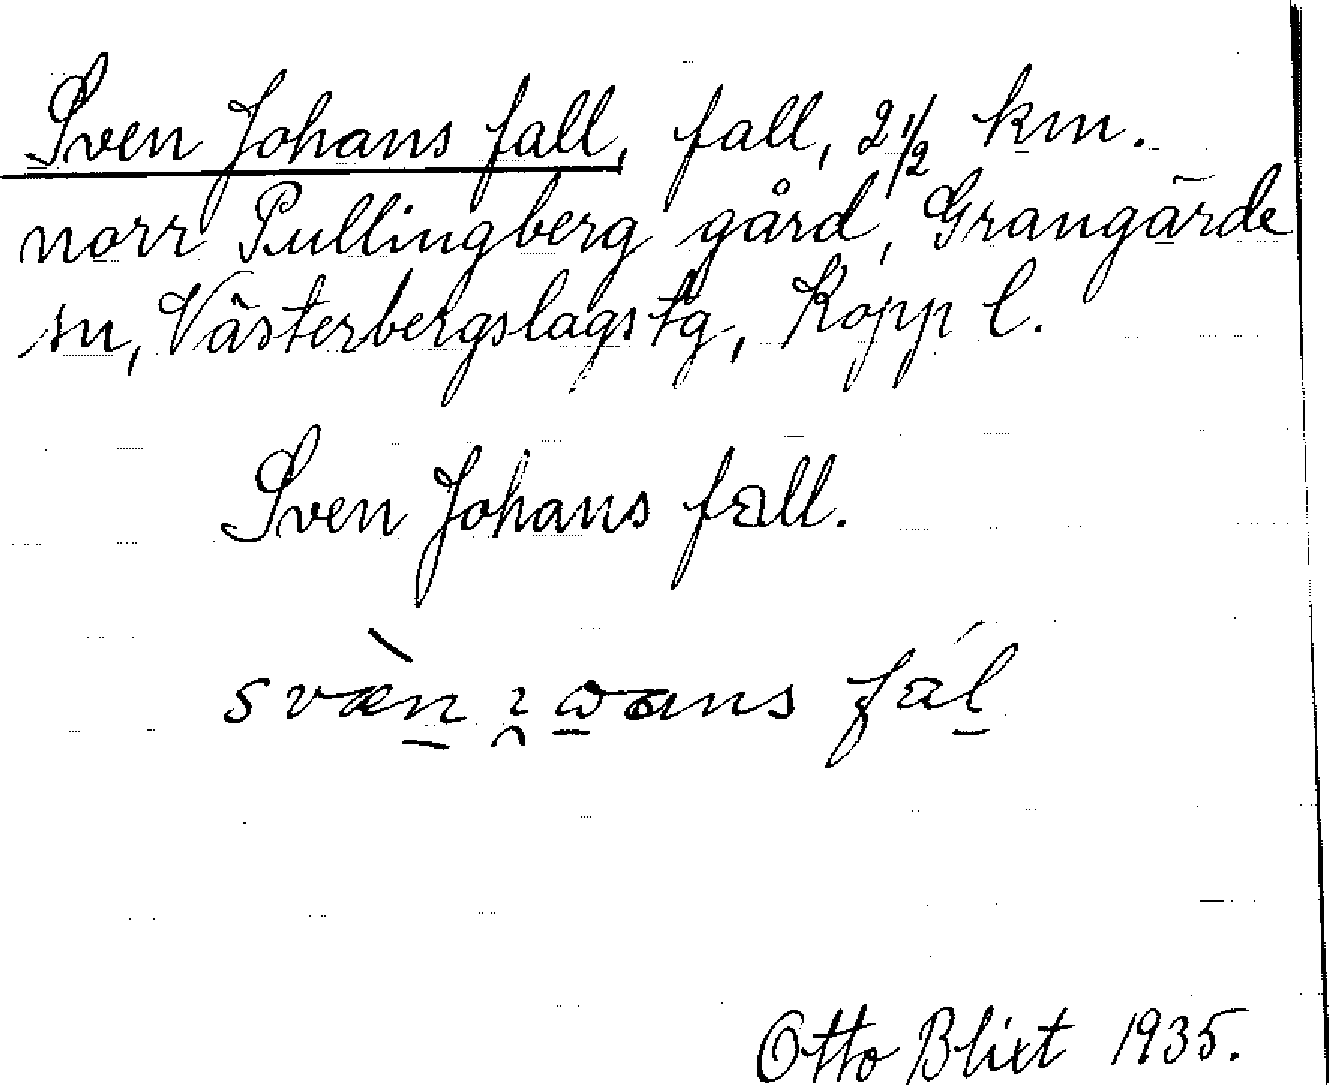 Sven Johans fall, fall, 2 1/2 km.
norr Pullingberg gård, Grangärde
sn, Västerbergslags tg, Kopp l.
Sven Johans fall.
Otto Blixt 1935.